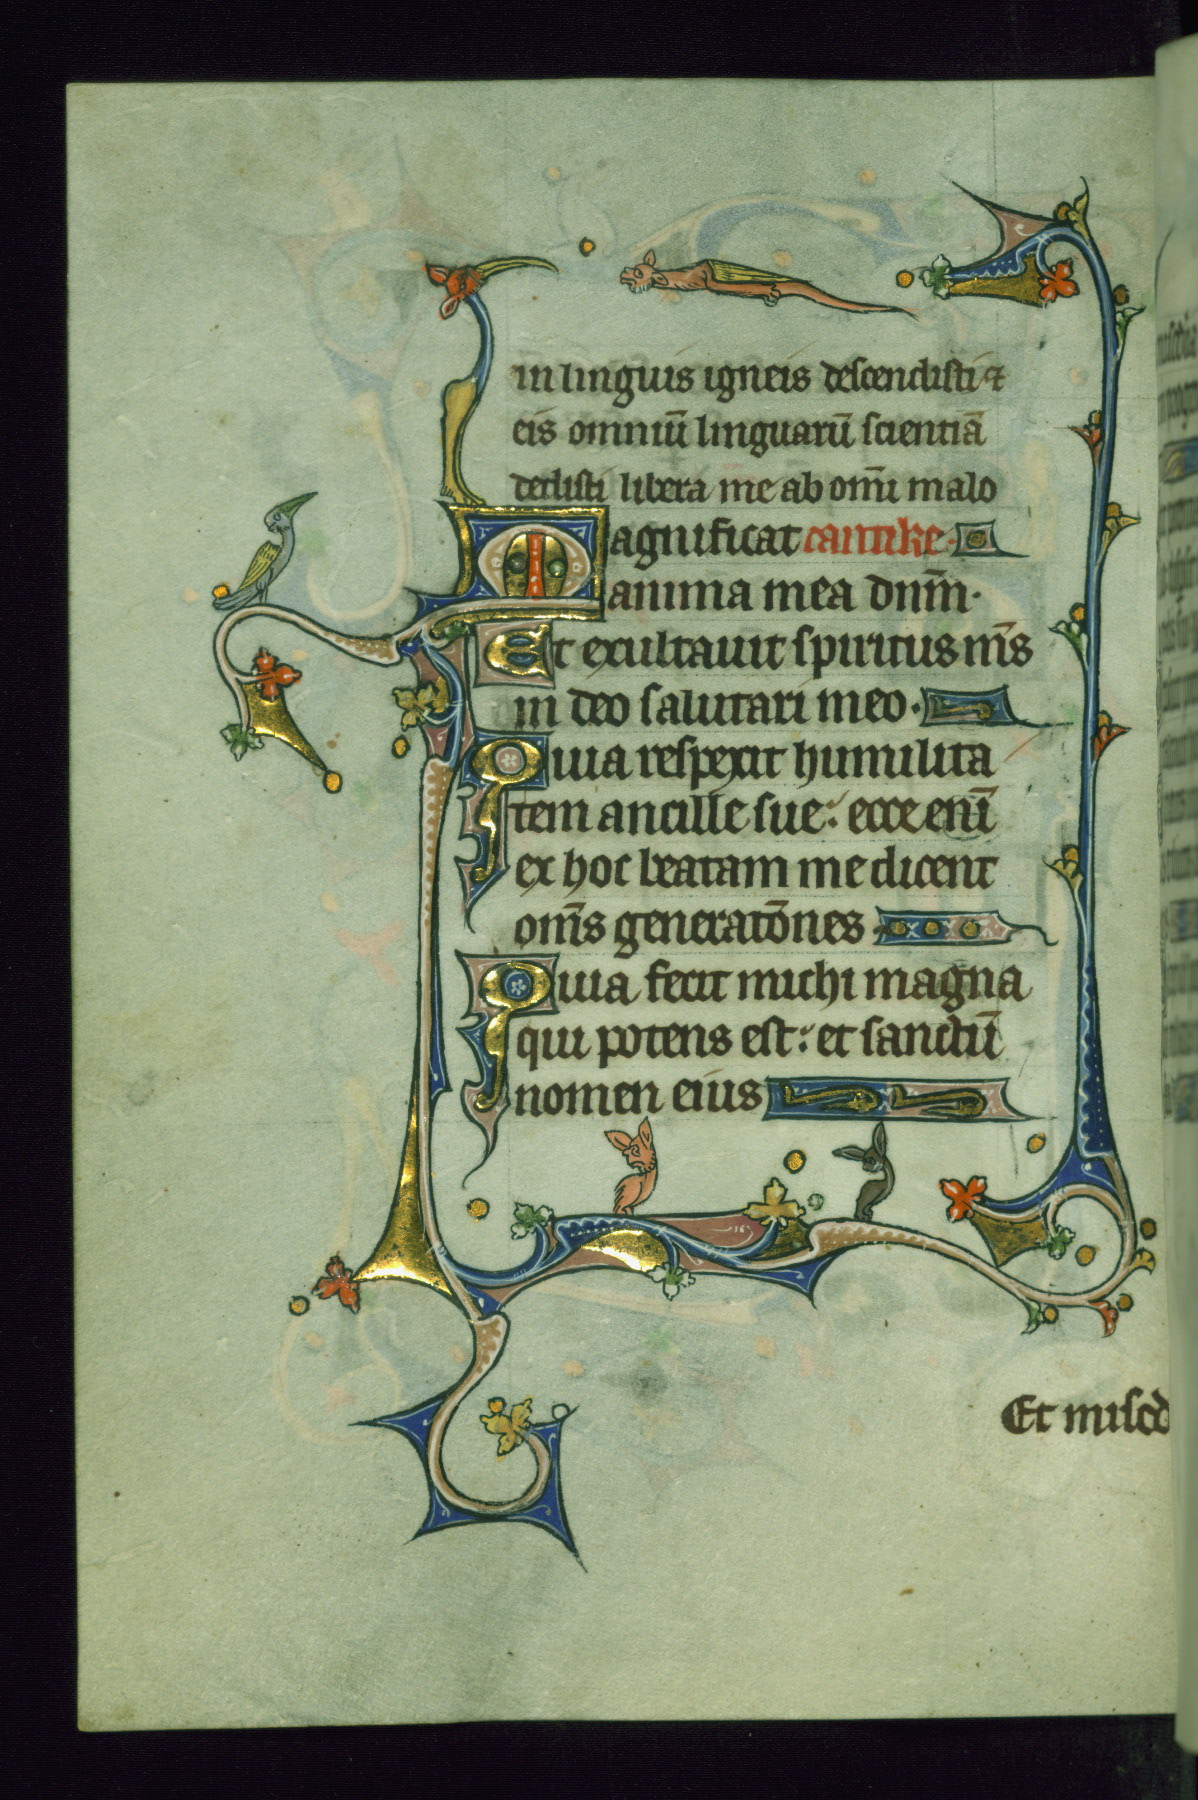 in linguis igneis descendisti ⁊
eis omniū linguarū scientiā
dedisti libera me ab om̄i malo
Magnificat cantike.
anima mea dnm̄.
Et exultauit spiritus m̄s
in deo salutari meo.
Quia respexit humilita
tem ancille sue: ecce enī
ex hoc beatam me dicent
om̄s generatōnes.
Quia fecit michi magna
qui potens est: et sanctū
nomen eius
Et miscd